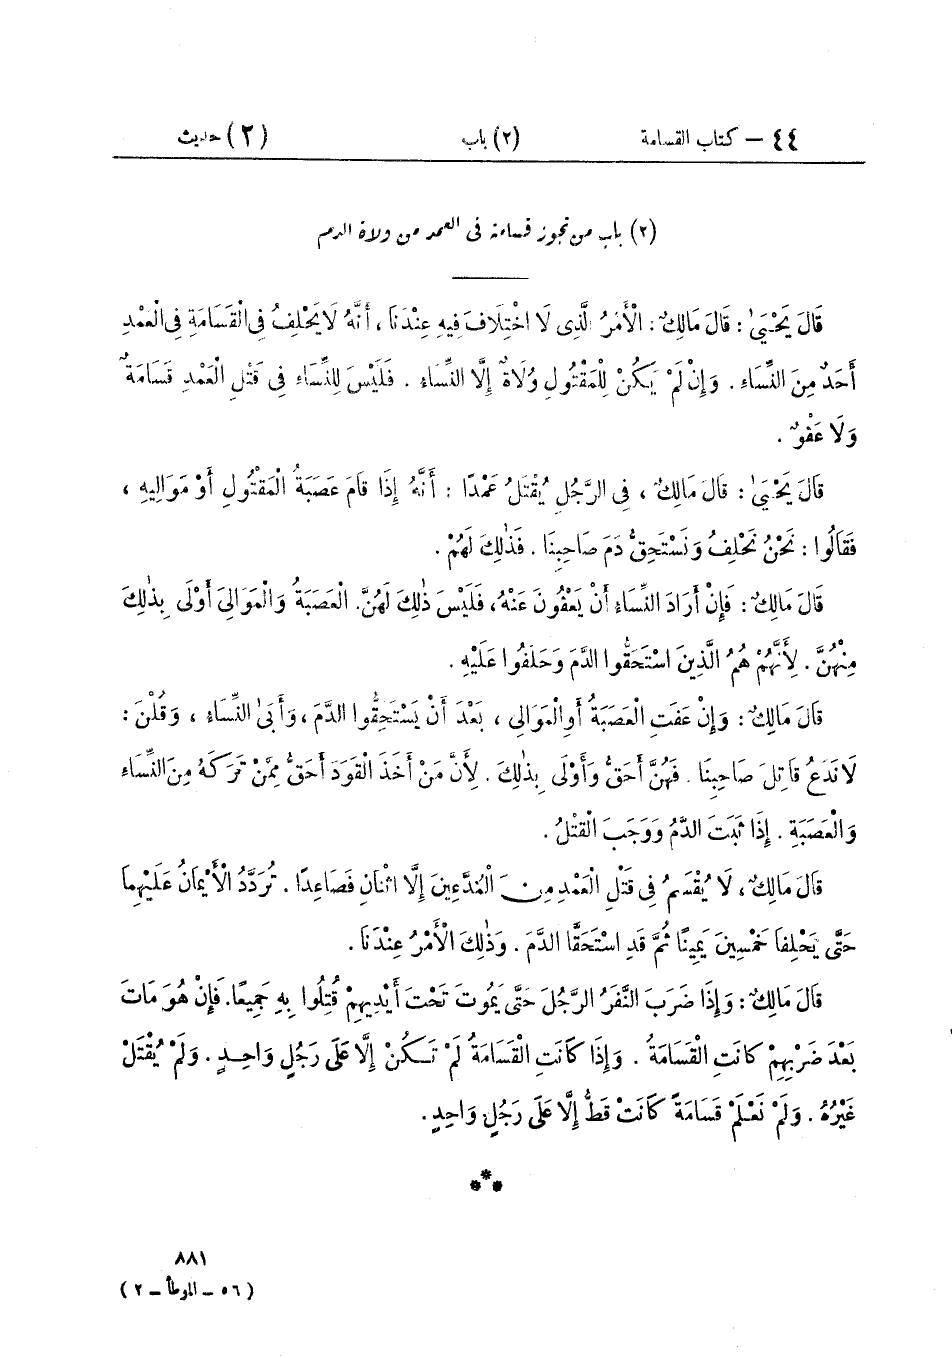 ٤٤ – كتاب القسامة (٢) باب (٢) حديث
(٢) باب من تجوز قسامته فى العمد من ولاة الدم
قَالَ يَحْيَىٰ : قَالَ مَالِكٌ : الْأَمْرُ الَّذِى لَا اخْتِلَافَ فِيهِ عِنْدَنَا ، أَنَّهُ لَا يَحْلِفُ فِى الْقَسَامَةِ فِى الْعَمْدِ
أَحَدٌ مِنَ النِّسَاءِ . وَإِنْ لَمْ يَكُنْ لِلْمَقْتُولِ وُلَاةٌ إِلَّا النِّسَاءِ . فَلَيْسَ لِلنِّسَاءِ فِى قَتْلِ الْعَمْدِ قَسَامَةٌ
وَلَا عَفْوٌ .
قَالَ يَحْيَىٰ : قَالَ مَالِكٌ ، فِى الرَّجُلِ يُقْتَلُ عَمْدًا : أَنَّهُ إِذَا قَامَ عَصَبَةُ الْمَقْتُولِ أَوْ مَوَالِيهِ ،
فَقَالُوا : نَحْنُ نَحْلِفُ وَنَسْتَحِقُّ دَمَ صَاحِبِنَا . فَذٰلِكَ لَهُمْ .
قَالَ مَالِكٌ : فَإِنْ أَرَادَ النِّسَاءِ أَنْ يَعْفُونَ عَنْهُ ، فَلَيْسَ ذٰلِكَ لَهُنَّ. الْعَصَبَةُ وَالْمَوَالِى أَوْلَى بِذٰلِكَ
مِنْهُنَّ . لِأَنَّهُمْ هُمُ الَّذِينَ اسْتَحَقُّوا الدَّمَ وَحَلَفُوا عَلَيْهِ .
قَالَ مَالِكٌ : وَإِنْ عَفَتِ الْعَصَبَةُ أَوِ الْمَوَالِى ، بَعْدَ أَنْ يَسْتَحِقُّوا الدَّمَ ، وَأَبَى النِّسَاءِ ، وَقُلْنَ :
لَا نَدَعُ قَاتِلَ صَاحِبِنَا . فَهُنَّ أَحَقُّ وَأَوْلَى بِذٰلِكَ . لِأَنَّ مَنْ أَخَذَ الْقَوَدَ أَحَقُّ مِمَّنْ تَرَكَهُ مِنَ النِّسَاءِ
وَالْعَصَبَةِ . إِذَا ثَبَتَ الدَّمُ وَوَجَبَ الْقَتْلُ .
قَالَ مَالِكٌ ، لَا يُقْسَمُ فِى قَتْلِ الْعَمْدِ مِنَ الْمُدَّعِينَ إِلَّا اثْنَانِ فَصَاعِدًا . تُرَدَّدُ الْأَيْمَانُ عَلَيْهِمَا
حَتَّى يَحْلِفَا خَمْسِينَ يَمِينًا ثُمَّ قَدِ اسْتَحَقَّا الدَّمَ . وَذٰلِكَ الْأَمْرُ عِنْدَنَا .
قَالَ مَالِكٌ : وَإِذَا ضَرَبَ النَّفَرُ الرَّجُلَ حَتَّى يَمُوتَ تَحْتَ أَيْدِيهِمْ قُتِلُوا بِهِ جَمِيعًا. فَإِنْ هُوَ مَاتَ
بَعْدَ ضَرْبِهِمْ كَانَتِ الْقَسَامَةُ . وَإِذَا كَانَتِ الْقَسَامَةُ لَمْ تَكُنْ إِلَّا عَلَى رَجُلٍ وَاحِدٍ . وَلَمْ يُقْتَلْ
غَيْرُهُ . وَلَمْ نَعْلَمْ قَسَامَةً كَانَتْ قَطُّ إِلَّا عَلَى رَجُلٍ وَاحِدٍ .
٨٨١
( ٥٦ – الموطأ – ٢ )